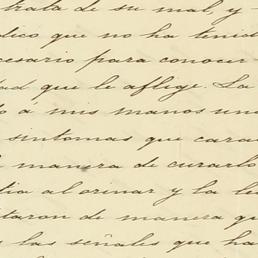 trata de su mal, y
dico que no ha tenid
cesario para conocer
dad que le aflige. La
ó á mis manos un
sintomas que cara
manera de curarlo
tia al orinar y la le
taron de manera qu
las señales que ha